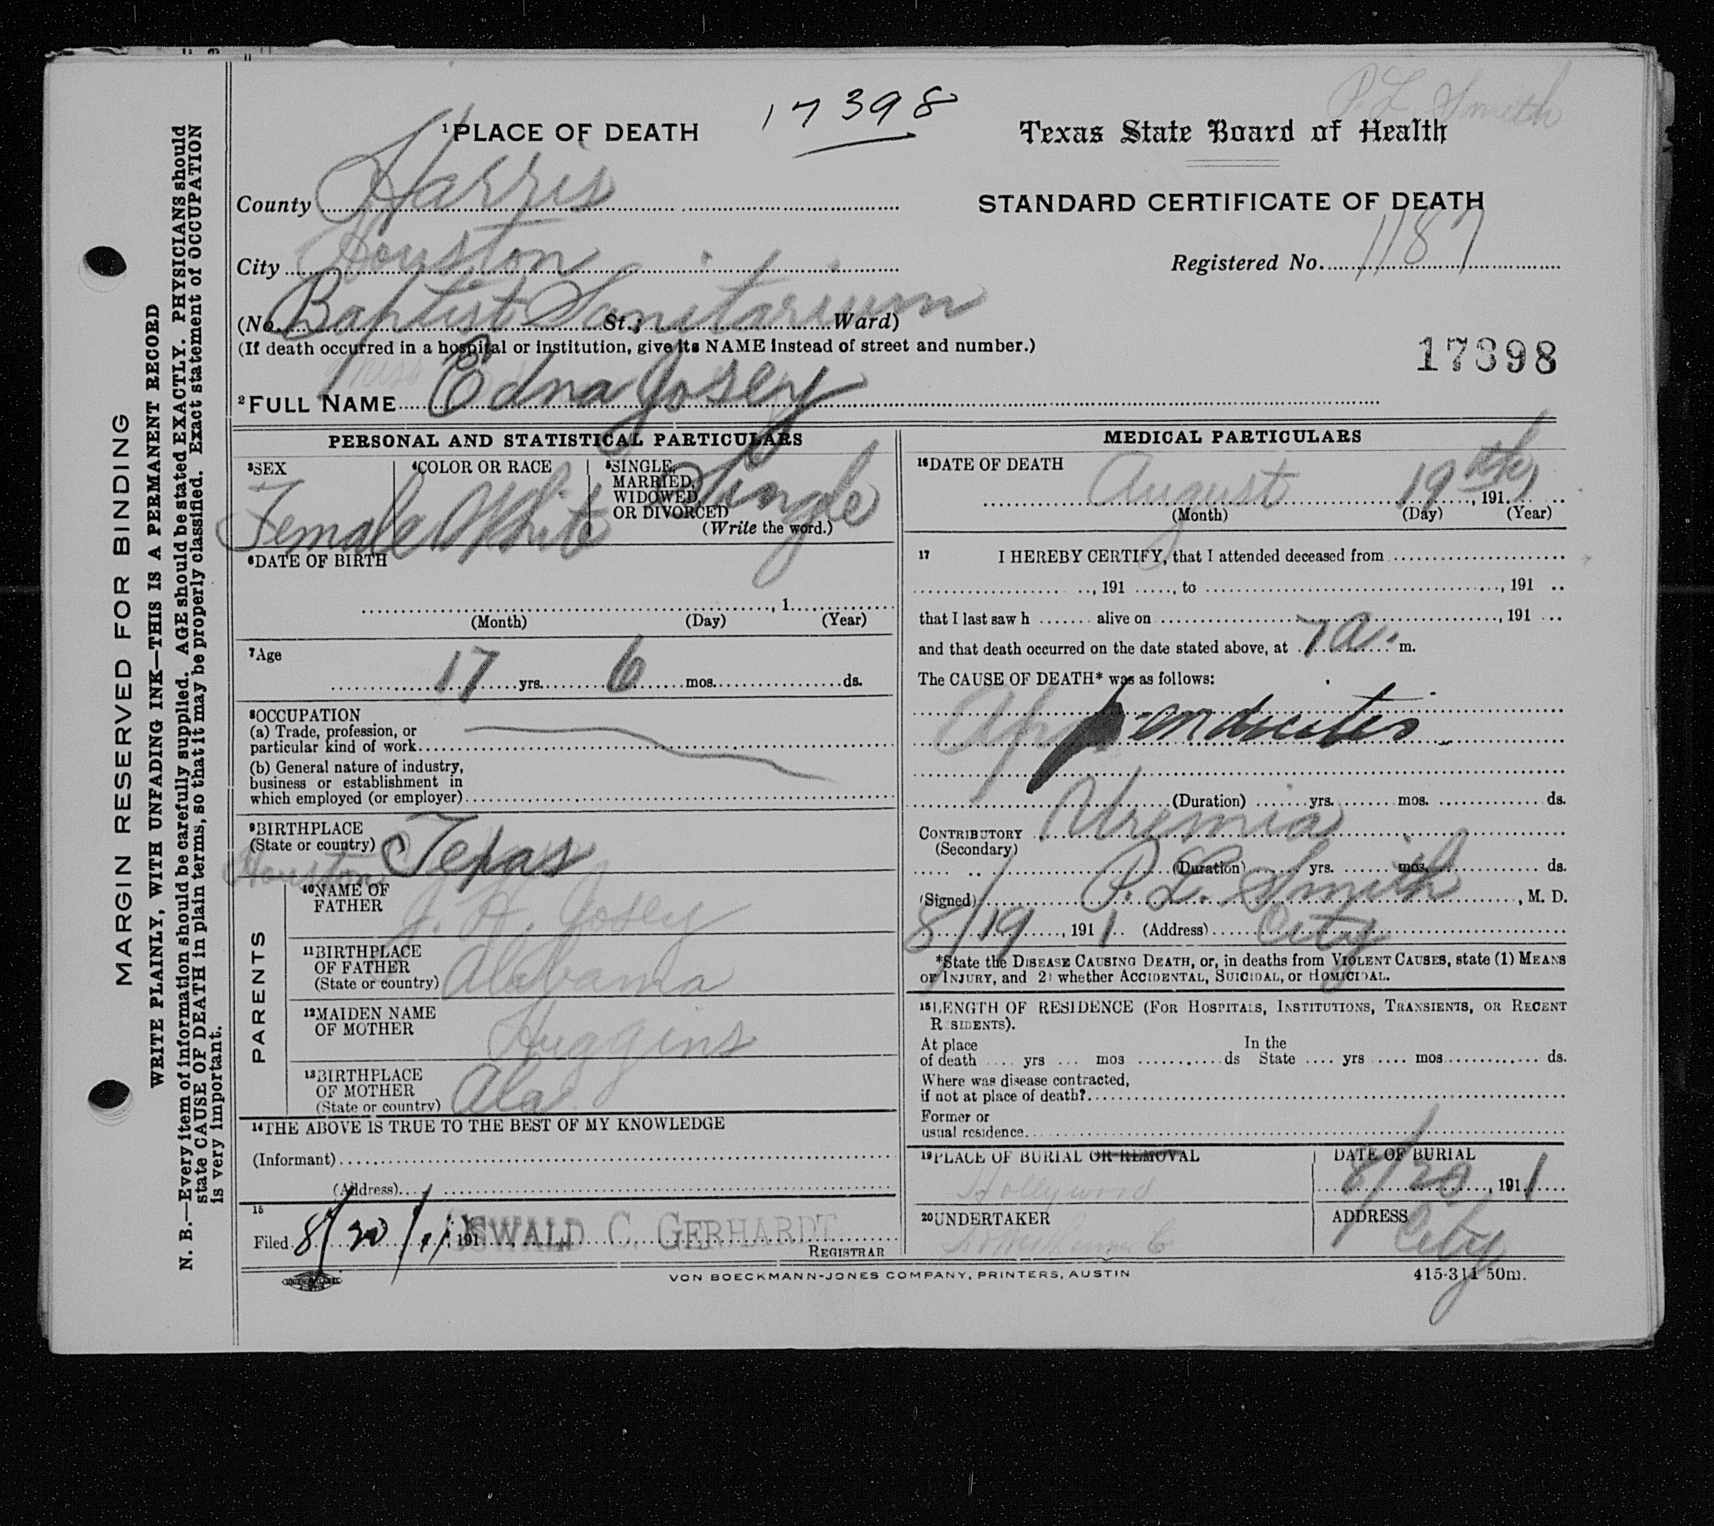 MARGIN RESERVED FOR BINDING
WRITE PLAINLY, WITH UNFADING INK—THIS IS A PERMANENT RECORD
N. B.—Every item of information should be carefully supplied. AGE should be stated EXACTLY. PHYSICIANS should
state CAUSE OF DEATH in plain terms, so that it may be properly classified. Exact statement of OCCUPATION
is very important.
P. L. Smith
17398
1 PLACE OF DEATH
Texas State Board of Health
County Harris
STANDARD CERTIFICATE OF DEATH
City Houston
Registered No. 1187
(No. Baptist Sanitarium St.; Ward)
(If death occurred in a hospital or institution, give its NAME instead of street and number.)
17398
Miss
2 FULL NAME Edna Josey
PERSONAL AND STATISTICAL PARTICULARS
3 SEX
Female
4 COLOR OR RACE
White
5 SINGLE,
MARRIED,
WIDOWED,
OR DIVORCED
(Write the word.)
Single
6 DATE OF BIRTH
, 1
(Month) (Day) (Year)
7 Age
17 yrs. 6 mos. ds.
8 OCCUPATION
(a) Trade, profession, or
particular kind of work
(b) General nature of industry,
business or establishment in
which employed (or employer)
9 BIRTHPLACE
(State or country) Texas
Houston
PARENTS
10 NAME OF
FATHER J. H. Josey
11 BIRTHPLACE
OF FATHER
(State or country) Alabama
12 MAIDEN NAME
OF MOTHER Huggins
13 BIRTHPLACE
OF MOTHER
(State or country) Ala
14 THE ABOVE IS TRUE TO THE BEST OF MY KNOWLEDGE
(Informant)
(Address)
15
Filed 8/20/11, 191 OSWALD C. GERHARDT
REGISTRAR
MEDICAL PARTICULARS
16 DATE OF DEATH
August 19th, 1911
(Month) (Day) (Year)
17 I HEREBY CERTIFY, that I attended deceased from
, 191 , to , 191
that I last saw h alive on , 191
and that death occurred on the date stated above, at 7 a. m.
The CAUSE OF DEATH* was as follows:
Appendicites
(Duration) yrs. mos. ds.
CONTRIBUTORY Uremia
(Secondary)
(Duration) yrs. mos. ds.
(Signed) P. L. Smith, M. D.
8/19, 1911 (Address) City
*State the DISEASE CAUSING DEATH, or, in deaths from VIOLENT CAUSES, state (1) MEANS
OF INJURY, and 2) whether ACCIDENTAL, SUICIDAL, or HOMICIDAL.
18 LENGTH OF RESIDENCE (FOR HOSPITALS, INSTITUTIONS, TRANSIENTS, OR RECENT
RESIDENTS).
At place In the
of death yrs mos ds State yrs mos ds.
Where was disease contracted,
if not at place of death?
Former or
usual residence
19 PLACE OF BURIAL OR REMOVAL
Hollywood
DATE OF BURIAL
8/20, 1911
20 UNDERTAKER
ADDRESS
City
VON BOECKMANN-JONES COMPANY, PRINTERS, AUSTIN
415-311 50m.